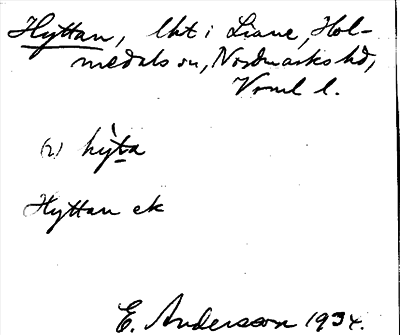 Hyttan, lht i Liane, Hol-
medals sn, Nordmarks hd,
Vrml l.
(2) hỳta
Hyttan ek
E. Anderson 1934.